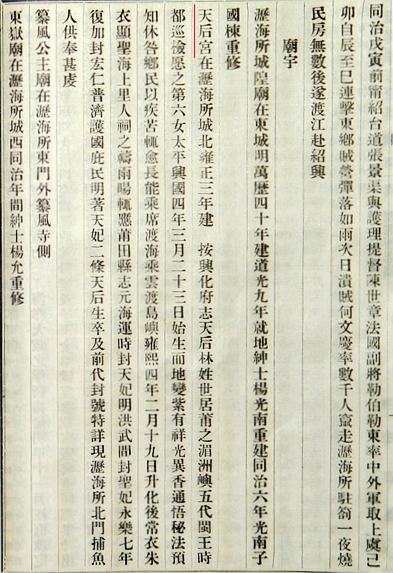 同治戊寅前甯紹台道張景渠與護理提督陳世章法國副將勒伯勒東率中外軍取上虞己
卯自辰至巳連擊東鄉賊營彈落如雨次日潰賊何文慶率數千人竄走瀝海所駐箚一夜燒
民房無數後遂渡江赴紹興
廟宇
瀝海所城隍廟在東城明萬歷四十年建道光九年就地紳士楊光南重建同治六年光南子
國棟重修
天后宮在瀝海所城北雍正三年建 按興化府志天后林姓世居莆之湄洲嶼五代閩王時
都巡檢愿之第六女太平興國四年三月二十三日始生而地變紫有祥光異香通悟秘法預
知休咎鄉民以疾苦輒愈長能乘席渡海乘雲渡島嶼雍熙四年二月十九日升化後常衣朱
衣顯聖海上里人祠之禱雨暘輒應莆田縣志元海運時封天妃明洪武間封聖妃永樂七年
復加封宏仁普濟護國庇民明著天妃二條天后生卒及前代封號特詳現瀝海所北門捕魚
人供奉甚虔
纂風公主廟在瀝海所東門外纂風寺側
東嶽廟在瀝海所城西同治年間紳士楊允重修